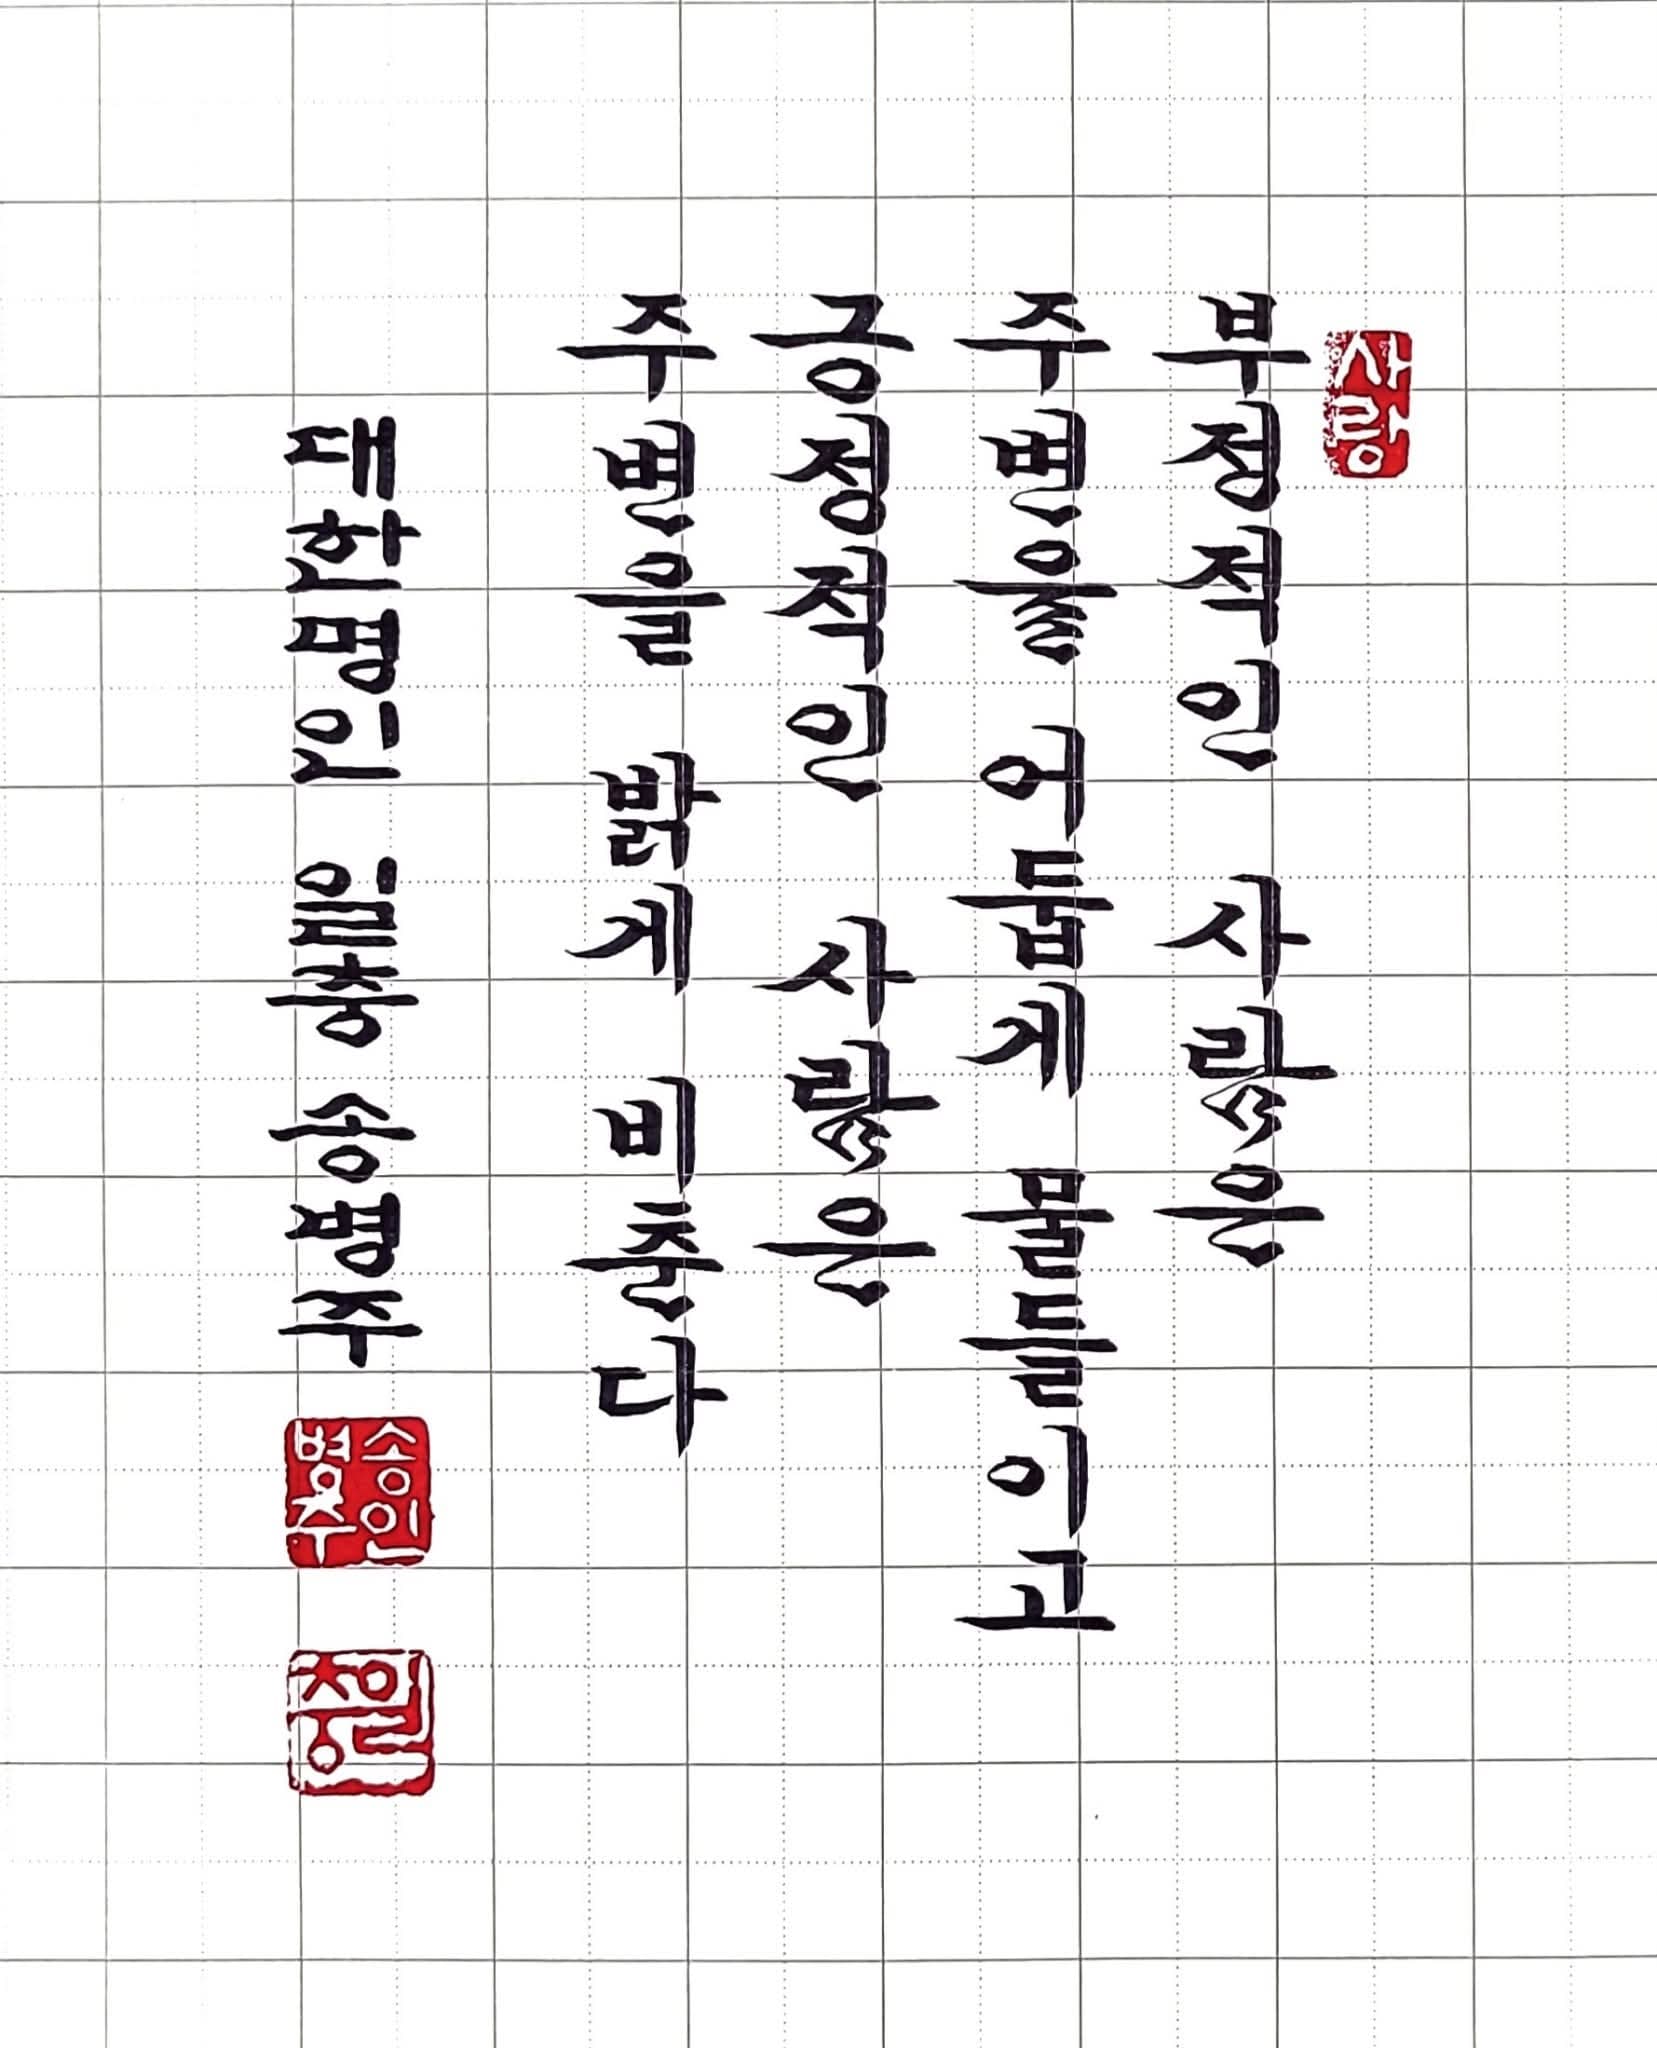 사랑
부정적인 사람은
주변을 어둡게 물들이고
긍정적인 사람은
주변을 밝게 비춘다
대한명인 일충 송병주
송병주인
일충